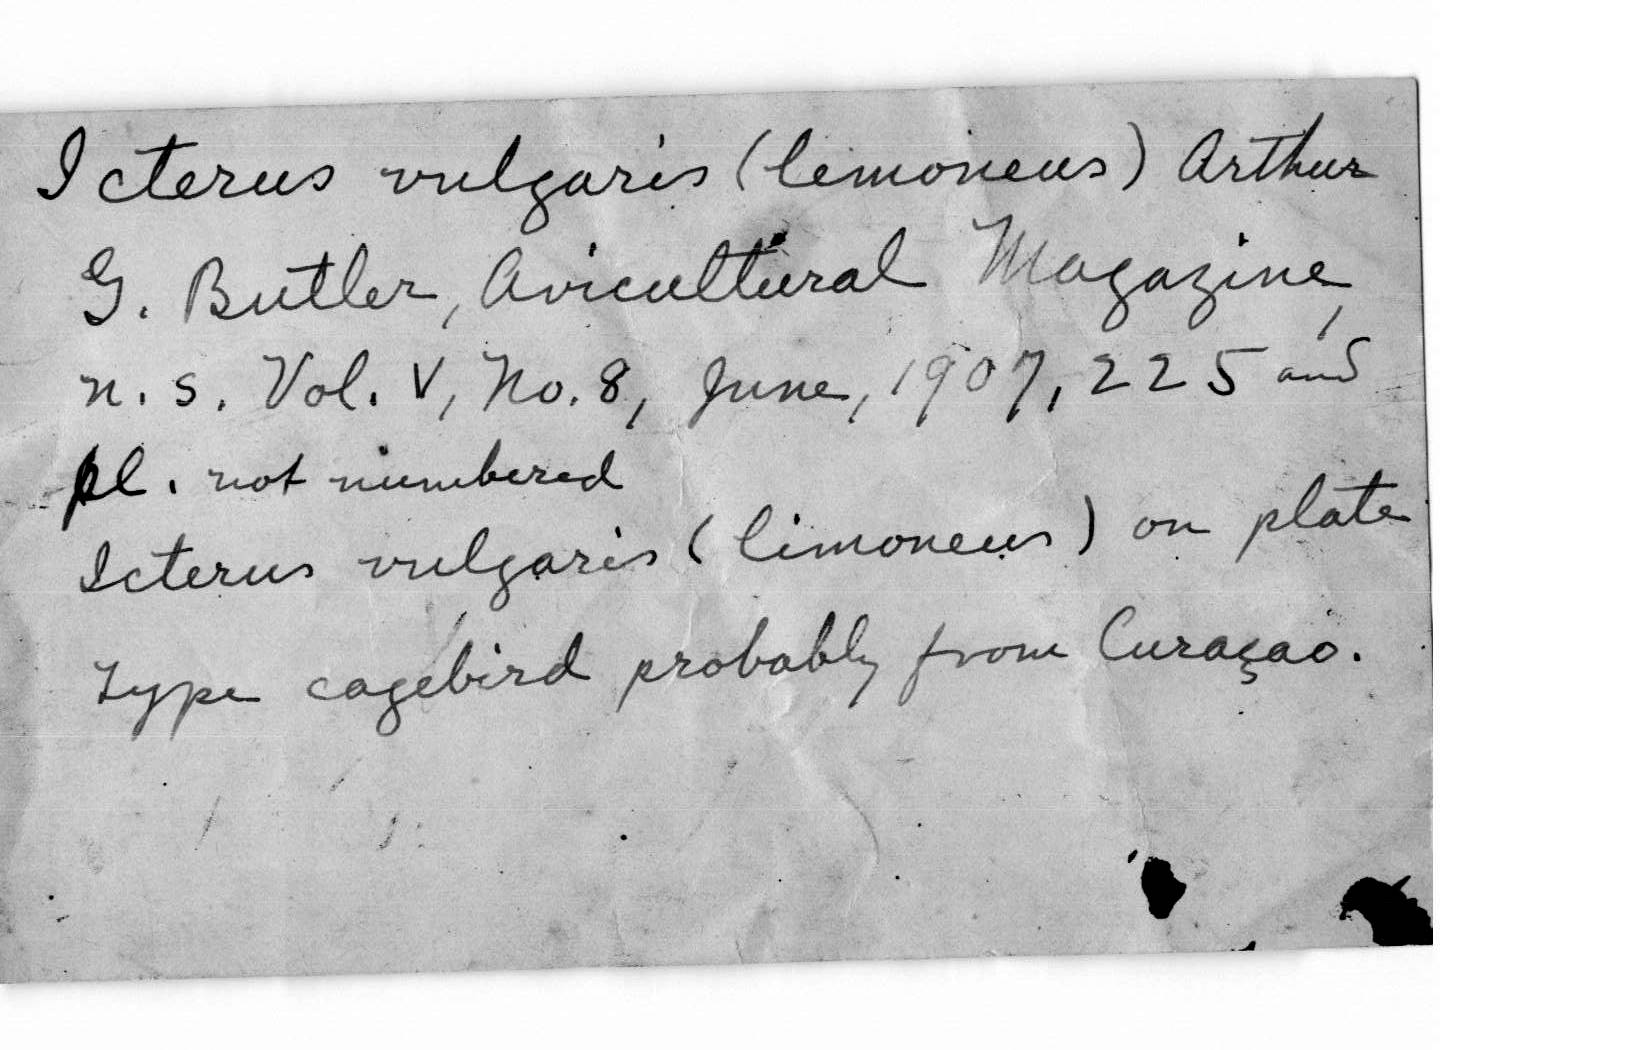 Icterus vulgaris (limoneus) Arthur
G. Butler, Avicultural Magazine,
n.s. Vol. V, No. 8, June, 1907, 225 and
pl. not numbered
Icterus vulgaris (limoneus) on plate
Type cagebird probably from Curaçao.